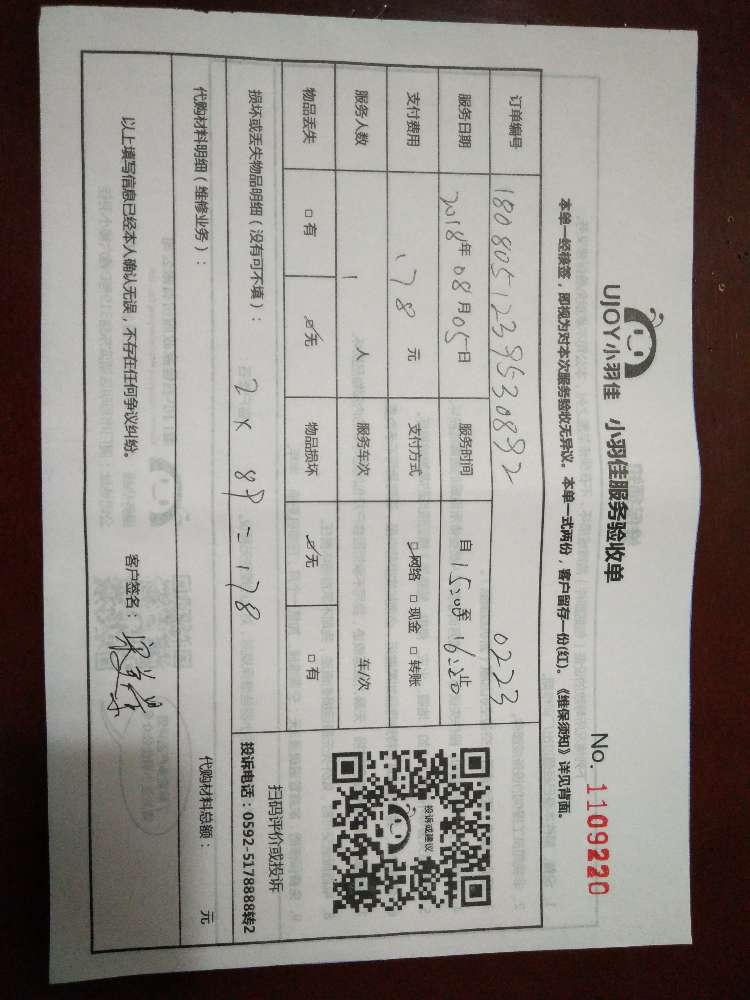 UJOY小羽佳 小羽佳服务验收单
No. 1109220
本单一经核签，即视为对本次服务验收无异议。本单一式两份，客户留存一份(红)。《维保须知》详见背面。
订单编号 180805123953089 2 0223
服务日期 2018年08月05日 服务时间 自15:00至16:00
支付费用 178元 支付方式 ☑网络 □现金 □转账
服务人数 1人 服务车次 车/次
物品丢失 □有 ☑无 物品损坏 ☑无 □有
投诉或建议
扫码评价或投诉
投诉电话：0592-5178888转2
损坏或丢失物品明细（没有可不填）： 2×89=178
代购材料明细（维修业务）： 代购材料总额： 元
以上填写信息已经本人确认无误，不存在任何争议纠纷。 客户签名：